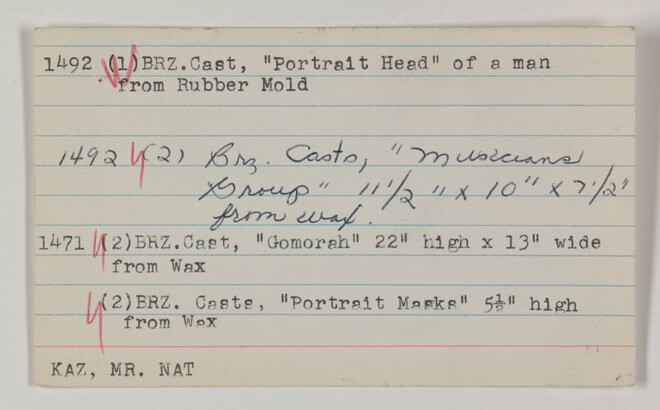 1492 (1)BRZ.Cast, "Portrait Head" of a man
from Rubber Mold
1492 (2) Brz. Casts, "Musicians
Group" 11 1/2" x 10" x 7 1/2"
from wax.
1471 (2)BRZ.Cast, "Gomorah" 22" high x 13" wide
from Wax
(2)BRZ. Casts, "Portrait Masks" 5½" high
from Wax
KAZ, MR. NAT